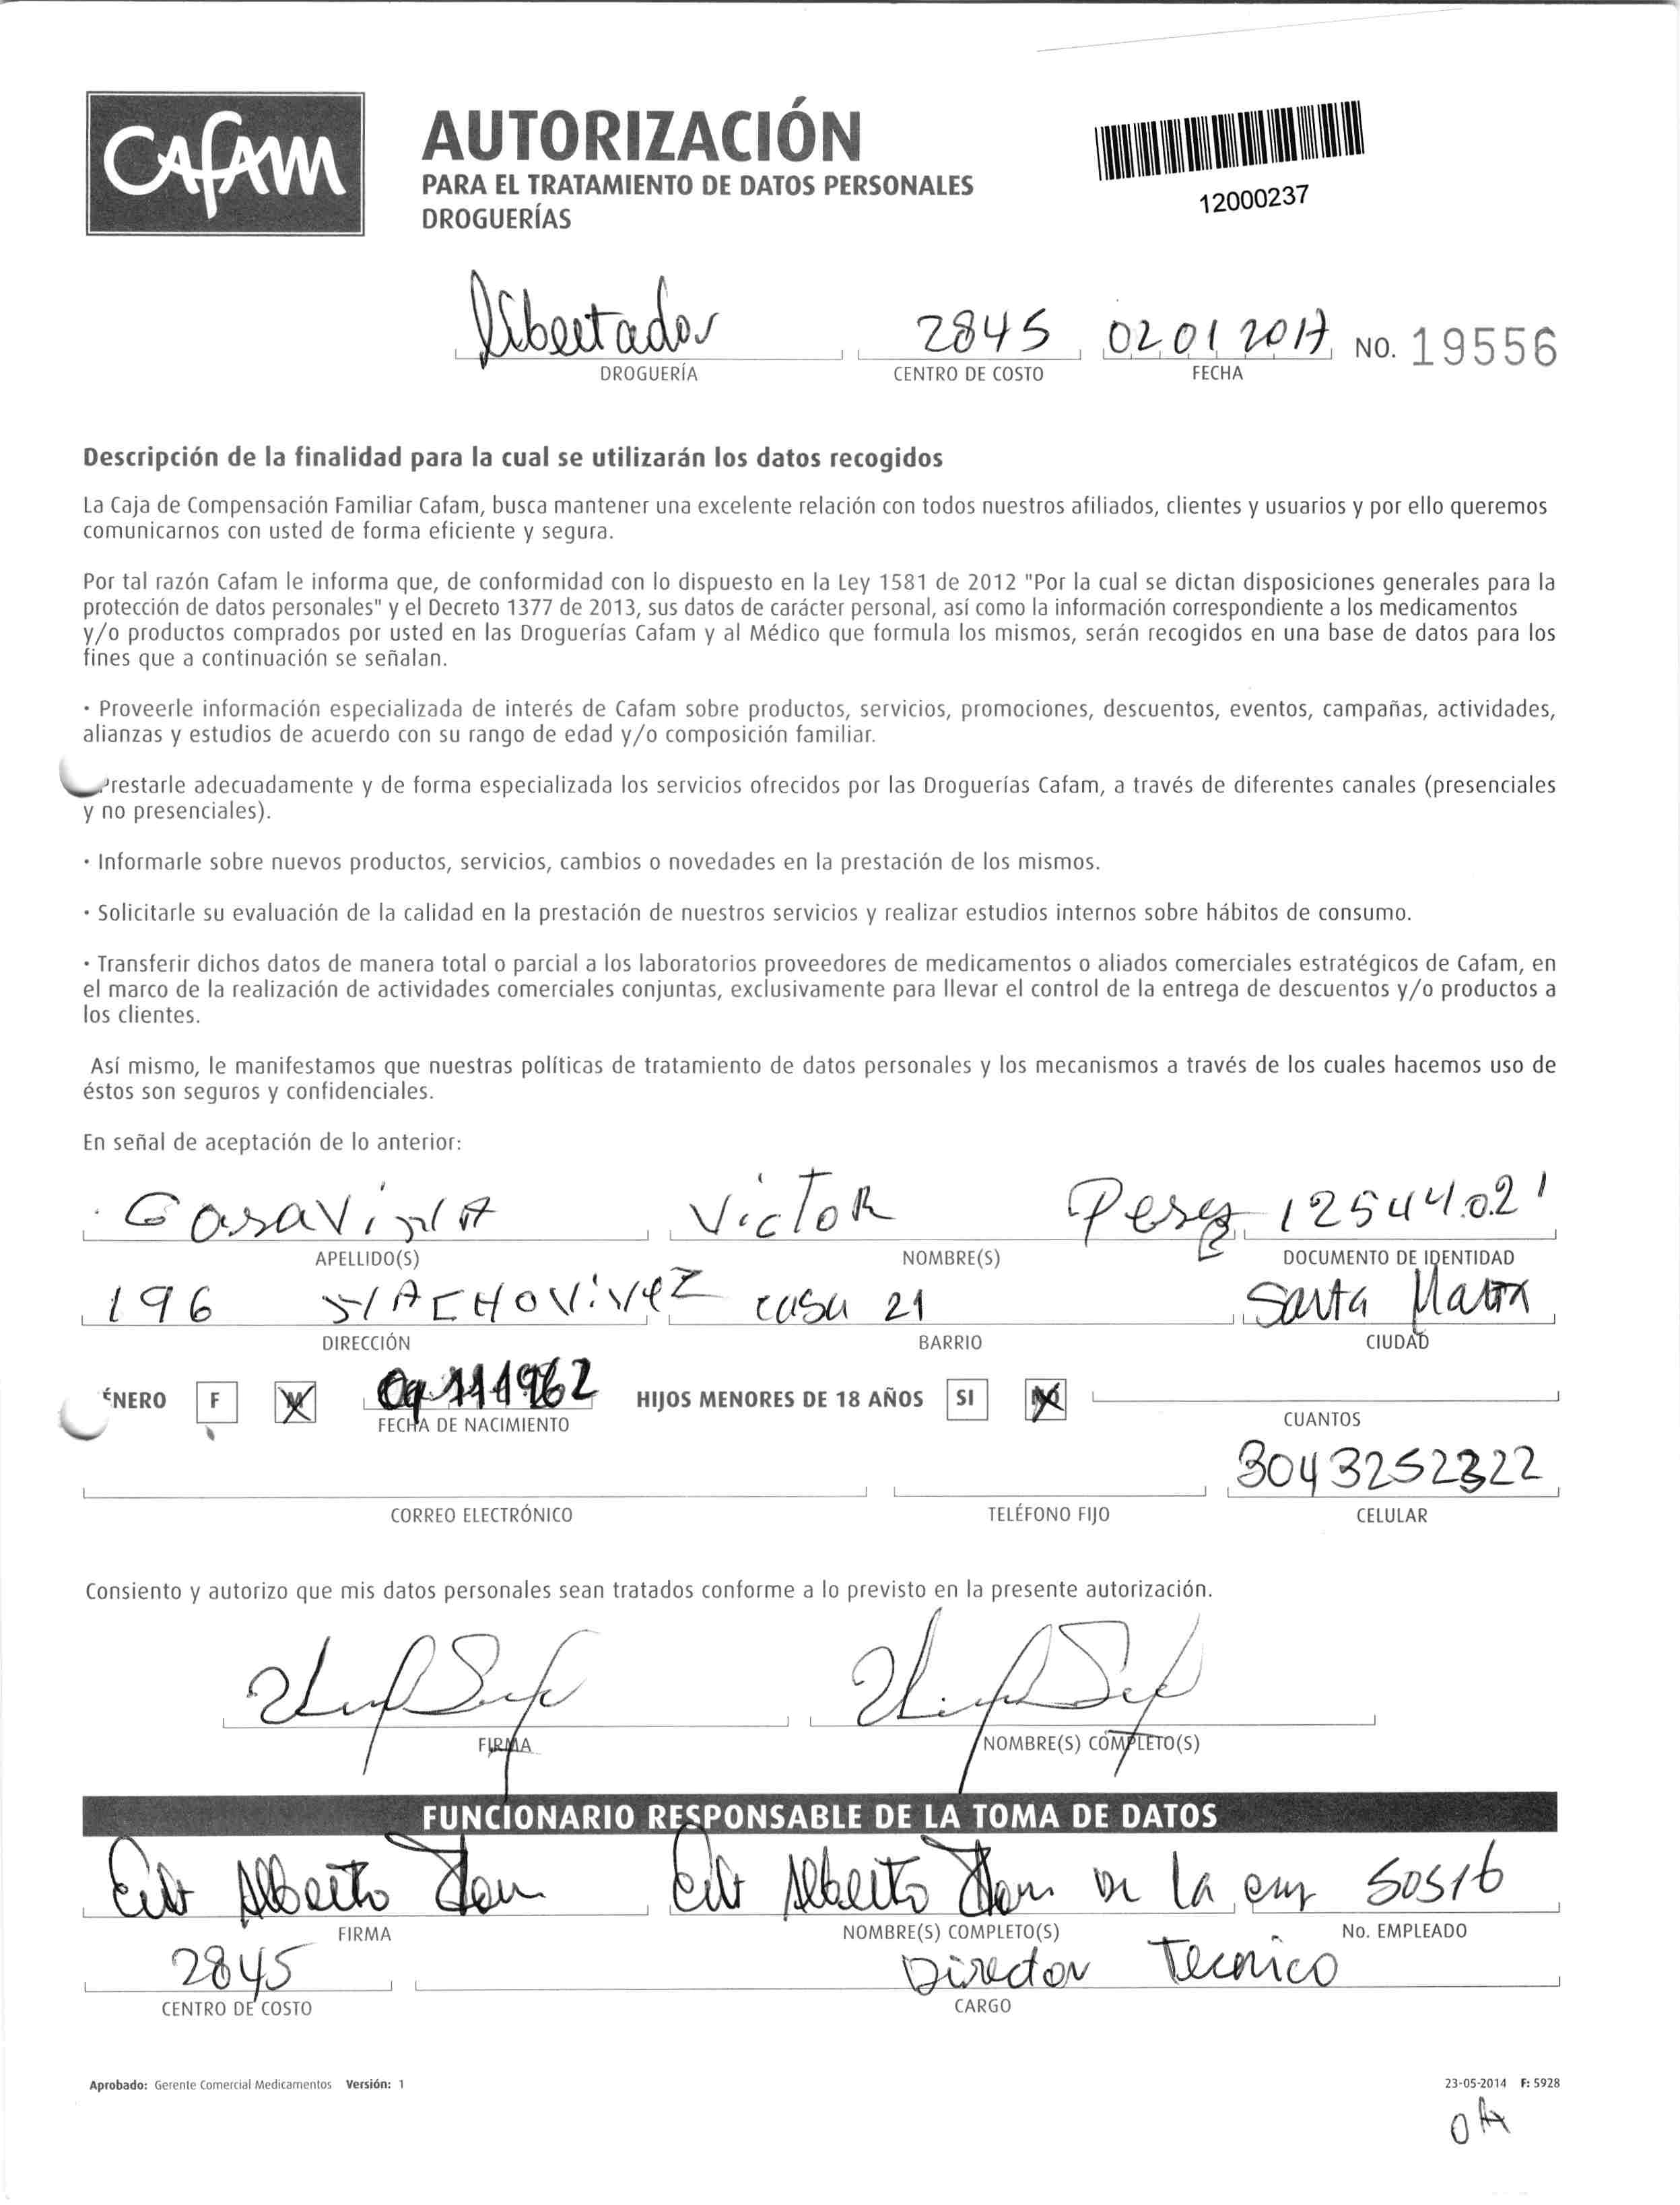 CAFAM
AUTORIZACIÓN
PARA EL TRATAMIENTO DE DATOS PERSONALES
DROGUERÍAS
12000237
Libertador 2845 02 01 2017 NO. 19556
DROGUERÍA CENTRO DE COSTO FECHA
Descripción de la finalidad para la cual se utilizarán los datos recogidos
La Caja de Compensación Familiar Cafam, busca mantener una excelente relación con todos nuestros afiliados, clientes y usuarios y por ello queremos
comunicarnos con usted de forma eficiente y segura.
Por tal razón Cafam le informa que, de conformidad con lo dispuesto en la Ley 1581 de 2012 "Por la cual se dictan disposiciones generales para la
protección de datos personales" y el Decreto 1377 de 2013, sus datos de carácter personal, así como la información correspondiente a los medicamentos
y/o productos comprados por usted en las Droguerías Cafam y al Médico que formula los mismos, serán recogidos en una base de datos para los
fines que a continuación se señalan.
· Proveerle información especializada de interés de Cafam sobre productos, servicios, promociones, descuentos, eventos, campañas, actividades,
alianzas y estudios de acuerdo con su rango de edad y/o composición familiar.
Prestarle adecuadamente y de forma especializada los servicios ofrecidos por las Droguerías Cafam, a través de diferentes canales (presenciales
y no presenciales).
· Informarle sobre nuevos productos, servicios, cambios o novedades en la prestación de los mismos.
· Solicitarle su evaluación de la calidad en la prestación de nuestros servicios y realizar estudios internos sobre hábitos de consumo.
· Transferir dichos datos de manera total o parcial a los laboratorios proveedores de medicamentos o aliados comerciales estratégicos de Cafam, en
el marco de la realización de actividades comerciales conjuntas, exclusivamente para llevar el control de la entrega de descuentos y/o productos a
los clientes.
Así mismo, le manifestamos que nuestras políticas de tratamiento de datos personales y los mecanismos a través de los cuales hacemos uso de
éstos son seguros y confidenciales.
En señal de aceptación de lo anterior:
Victor Perez 12544021
APELLIDO(S) NOMBRE(S) DOCUMENTO DE IDENTIDAD
196 casa 21 Santa Marta
DIRECCIÓN BARRIO CIUDAD
ÉNERO F M 09 11 1962 HIJOS MENORES DE 18 AÑOS SI NO
FECHA DE NACIMIENTO CUANTOS
3043252322
CORREO ELECTRÓNICO TELÉFONO FIJO CELULAR
Consiento y autorizo que mis datos personales sean tratados conforme a lo previsto en la presente autorización.
FIRMA NOMBRE(S) COMPLETO(S)
FUNCIONARIO RESPONSABLE DE LA TOMA DE DATOS
Alberto Alberto de la 50516
FIRMA NOMBRE(S) COMPLETO(S) No. EMPLEADO
2845 Director Tecnico
CENTRO DE COSTO CARGO
Aprobado: Gerente Comercial Medicamentos Versión: 1 23-05-2014 F: 5928